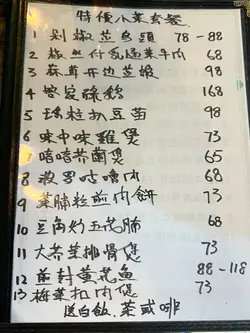 特價小菜套餐
1 剁椒蒸魚頭 78-88
2 椒絲付乳通菜牛肉 68
3 蒜茸开边蒸蝦 98
4 客家豉油鷄 168
5 瑤柱扒豆苗 98
6 味中味雞煲 73
7 啫啫芥蘭煲 65
8 波罗咕嚕肉 68
9 菜脯粒煎肉餅 73
10 豆角炒五花腩 68
11 大芥菜排骨煲 73
12 蒸封黄花魚 88-118
13 梅菜扣肉煲 73
送白飯，茶或啡